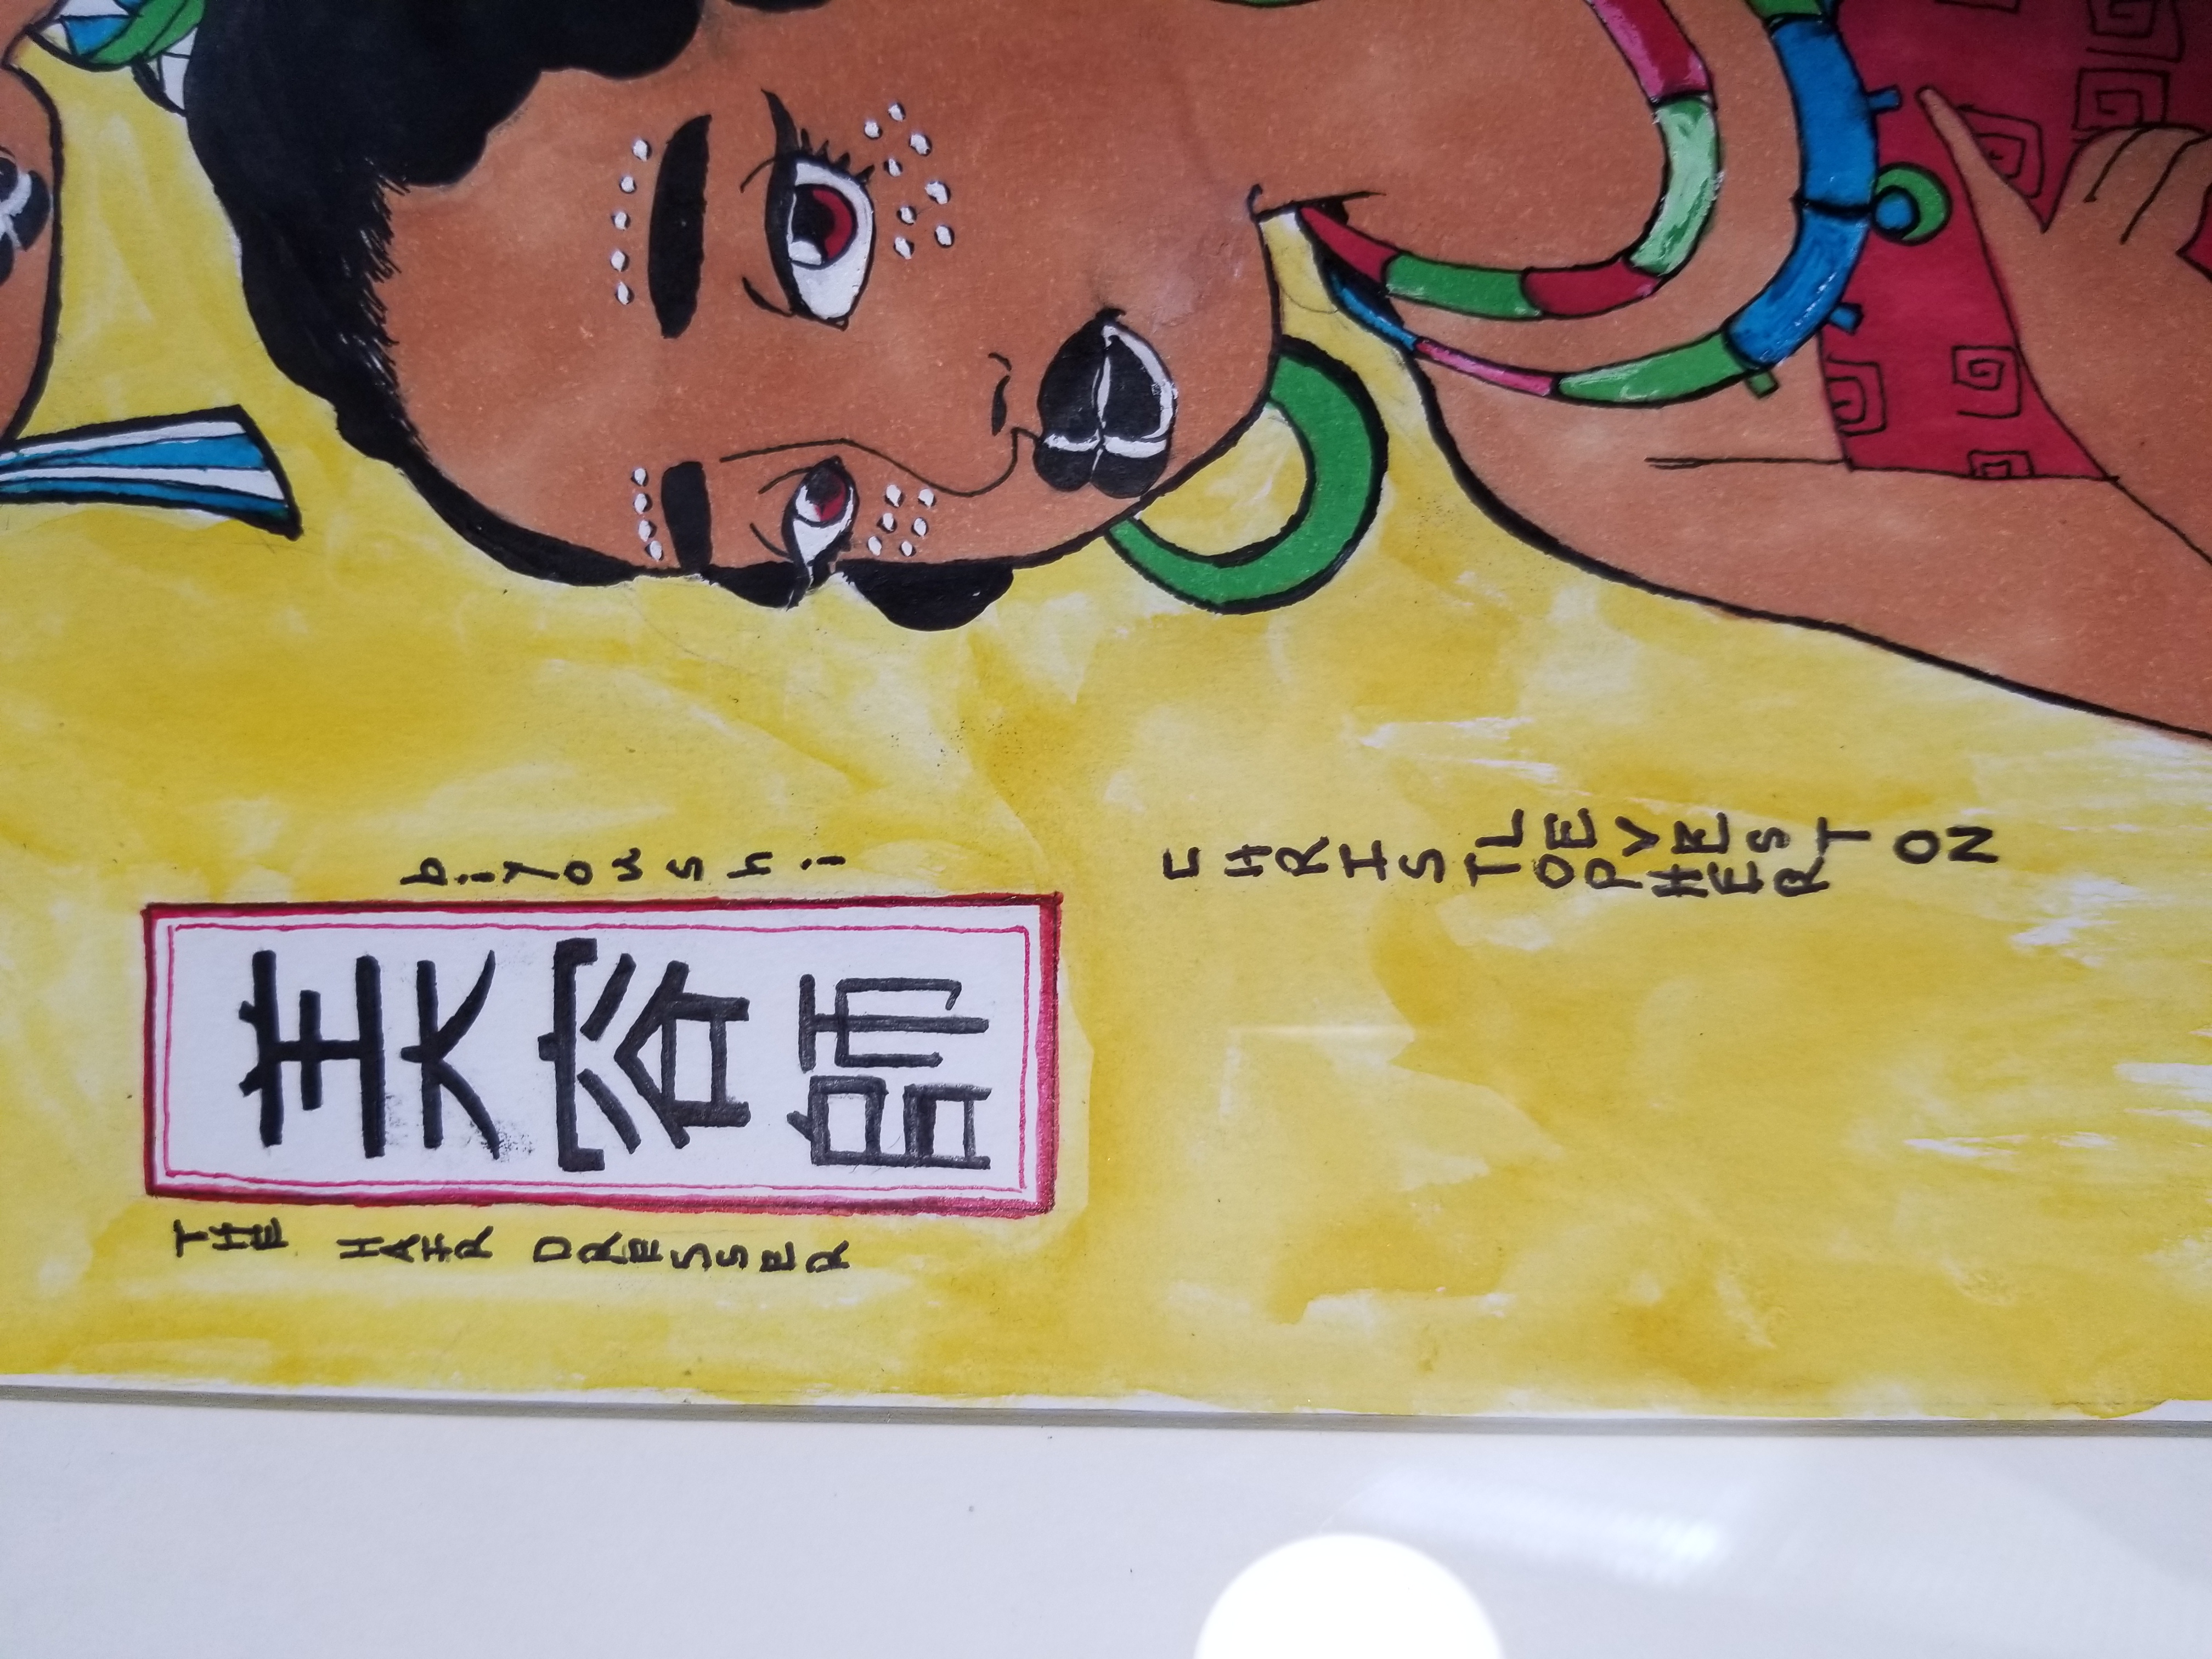 THE HAIR DRESSER
美容師
biyoushi
CHRISTOPHER
LEVESTON